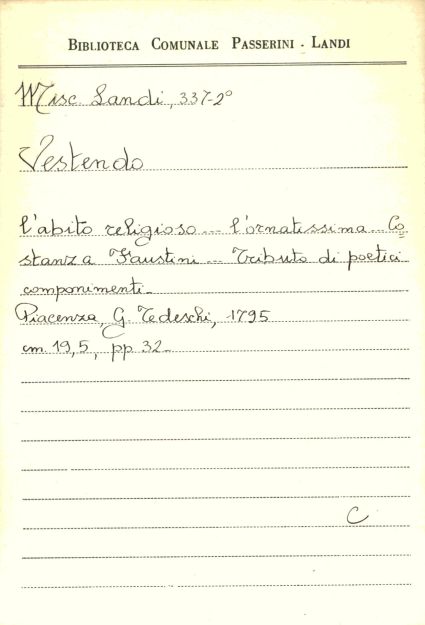 BIBLIOTECA COMUNALE PASSERINI - LANDI
Misc. Landi, 337-2°
Vestendo
l'abito religioso ... l'ornatissima ... Co=
stanza Faustini ... Tributo di poetici
componimenti.
Piacenza, G. Tedeschi, 1795
cm 19,5, pp 32.
C